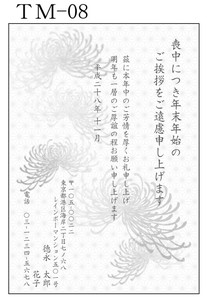 TM-08
喪中につき年末年始の
ご挨拶をご遠慮申し上げます
茲に本年中のご芳情を厚くお礼申し上げ
明年も一層のご厚誼の程お願い申し上げます
平成二十八年十一月
〒一〇五-〇〇二二
東京都港区海岸二丁目七ノ六八
メインボーマンション五〇一号
徳永 太郎
花子
電話 〇三-一二三四-五六七八